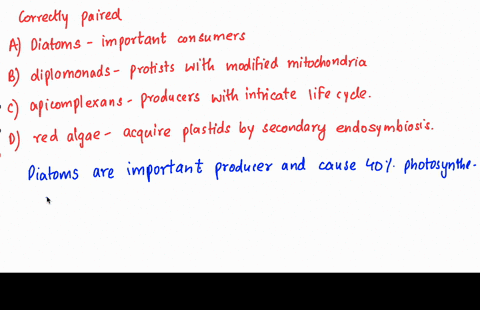 Correctly paired
A) Diatoms - important consumers
B) diplomonads - protists with modified mitochondria
C) apicomplexans - producers with intricate life cycle.
D) red algae - acquire plastids by secondary endosymbiosis.
Diatoms are important producer and cause 40% photosynthe-